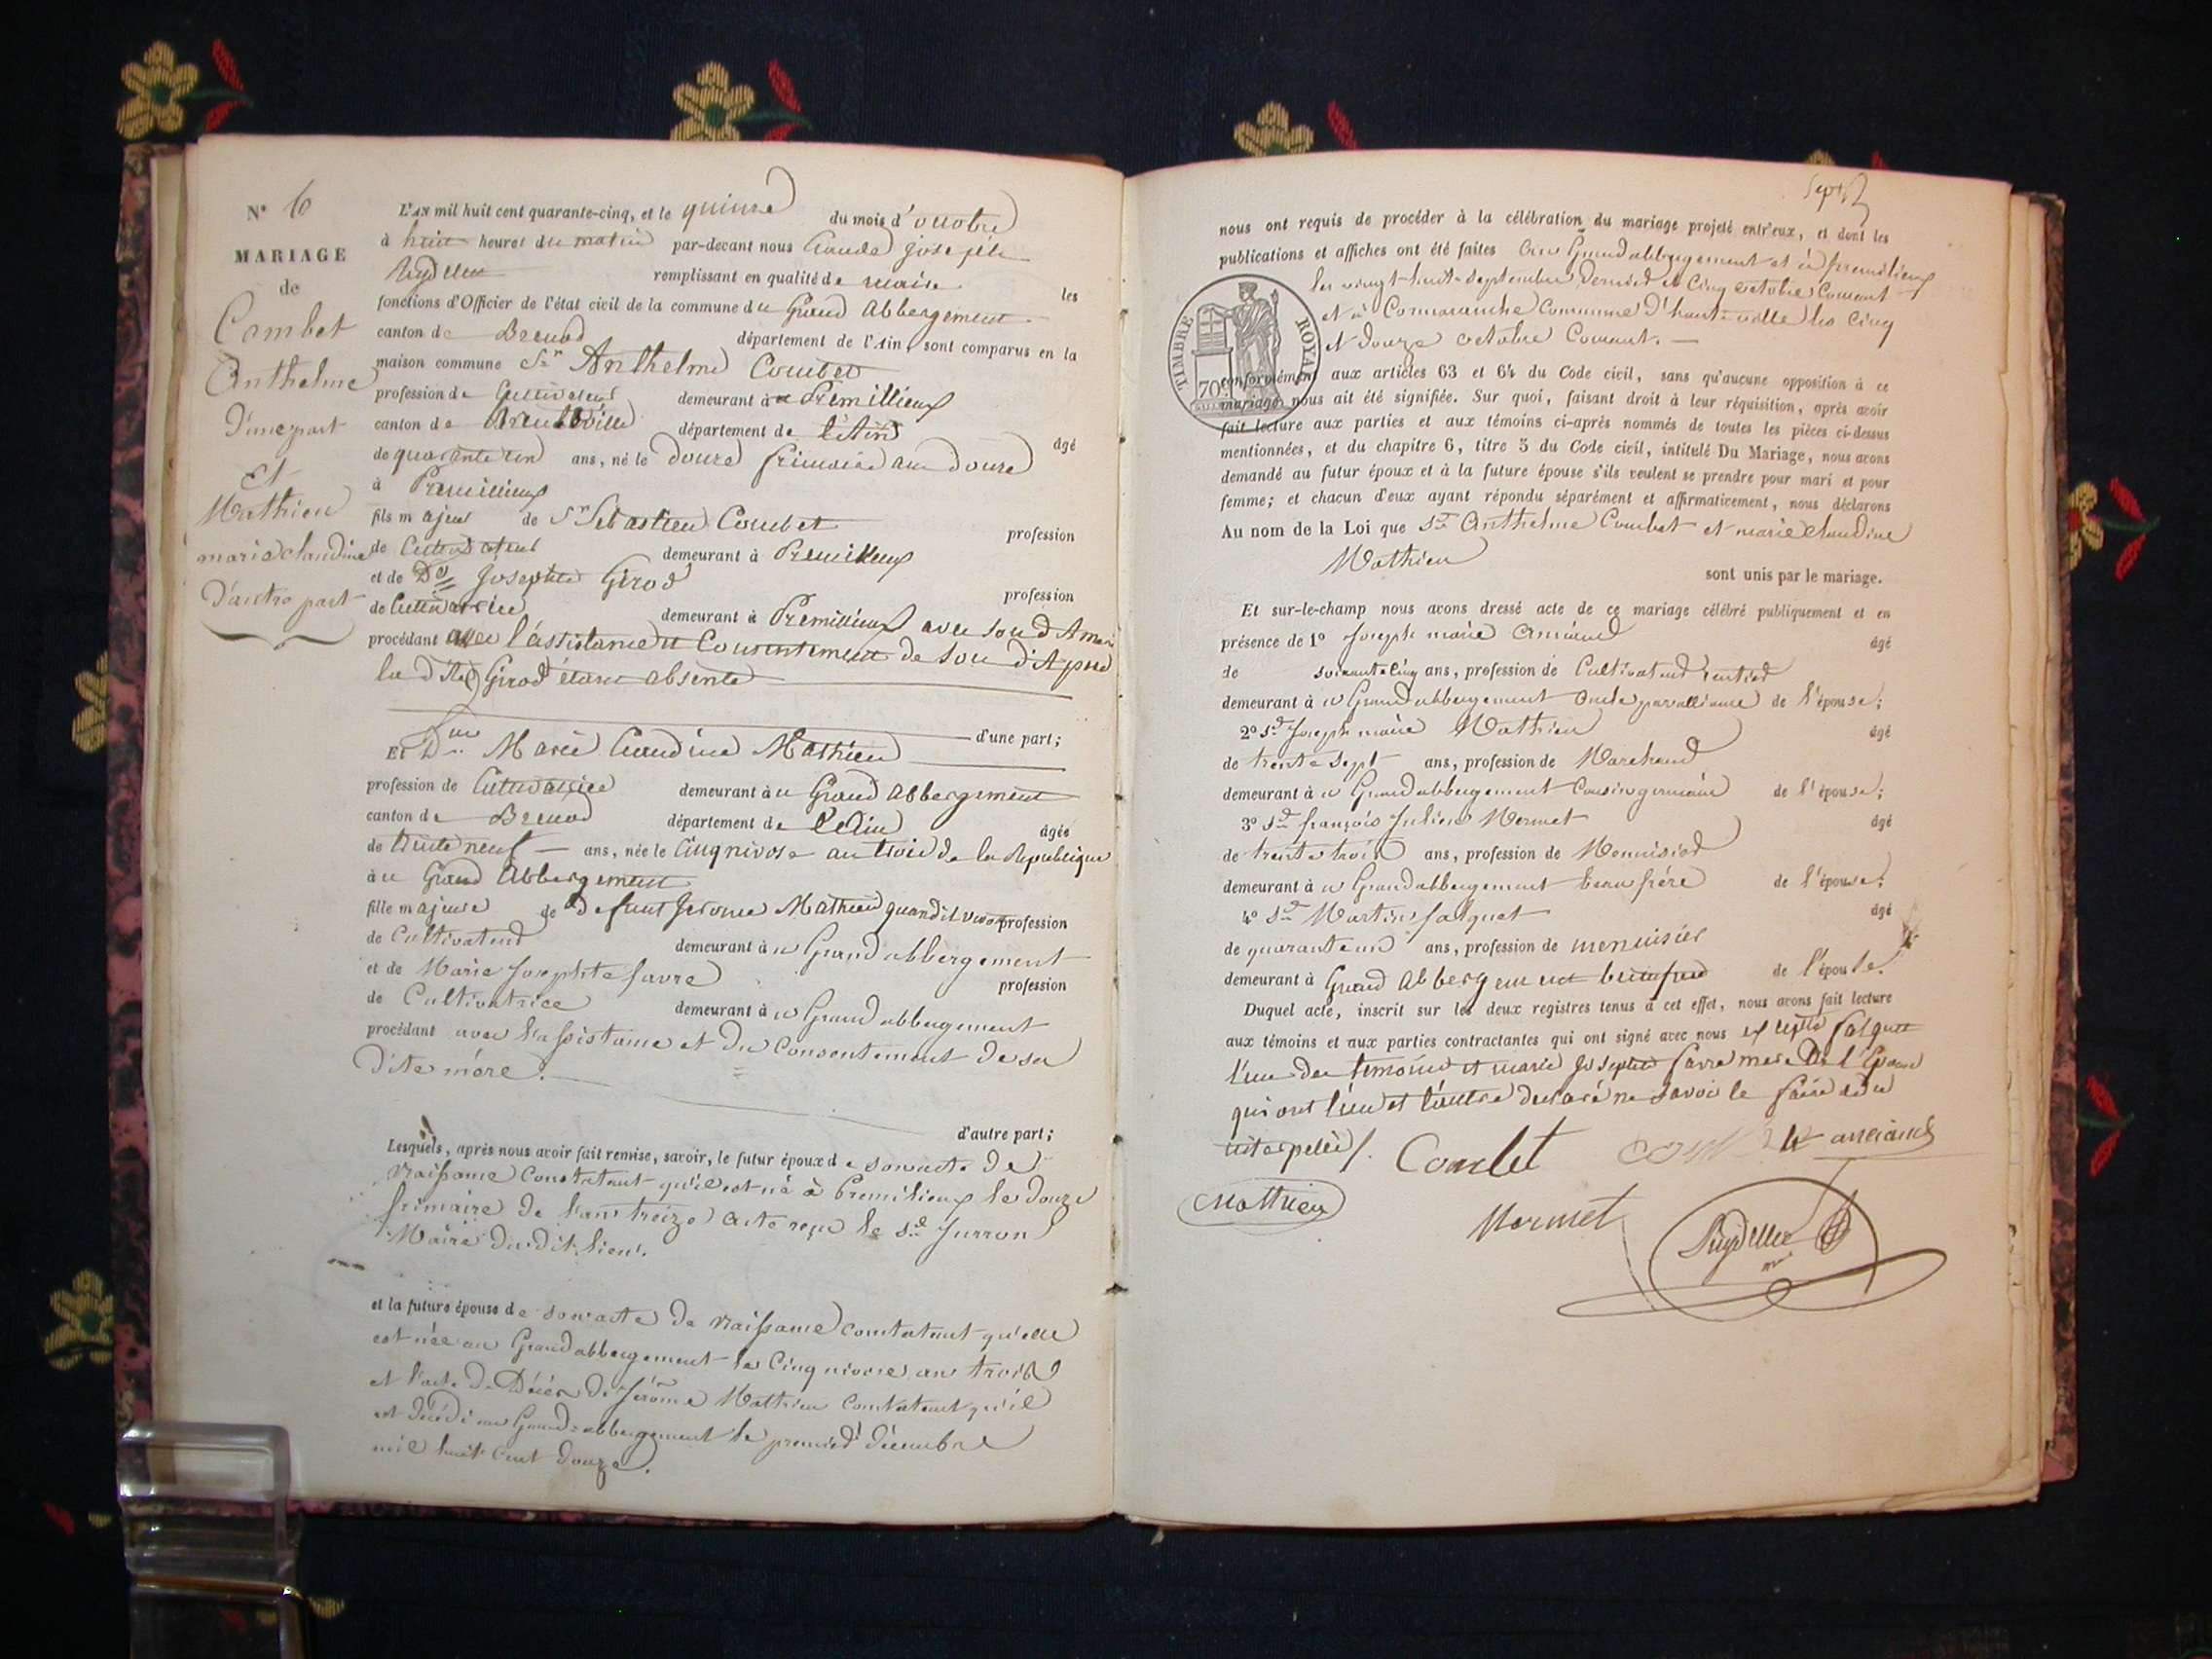 N° 6
MARIAGE
de
Combet
Anthelme
D'une part
Et
Mathieu
marie claudine
D'autre part
L'AN mil huit cent quarante-cinq, et le quinze du mois d'octobre
à huit heures du matin par-devant nous Claude joseph
Puydellier remplissant en qualité de maire les
fonctions d'Officier de l'état civil de la commune du Grand Abbergement
canton de Brenod département de l'Ain, sont comparus en la
maison commune Sr Anthelme Combet
profession de Cultivateur demeurant à Premillieux
canton de hauteville département de l'Ain âgé
de quarante un ans, né le douze frimaire an douze
à Premillieux
fils majeur de Sr Sebastien Combet profession
de Cultivateur demeurant à Premillieux
et de De Josephte Girod profession
de Cultivatrice demeurant à Premillieux avec son dt mari
procédant avec l'assistance et Consentement de son dit père
la dite Girod étant absente
d'une part;
Et Dme Marie Claudine Mathieu
profession de Cultivatrice demeurant à u Grand Abbergement
canton de Brenod département de l'Ain âgée
de trente neuf ans, née le Cinq nivose an trois de la Republique
à u Grand Abbergement
fille majeure de defunt Jerome Mathieu quand il vivoit profession
de Cultivateur demeurant à u Grand abbergement
et de Marie Josephte favre profession
de Cultivatrice demeurant à u Grand abbergement
procédant avec l'assistance et du Consentement de sa
dite mère.
d'autre part;
Lesquels, après nous avoir fait remise, savoir, le futur époux de son acte de
naissance Constatant qu'il est né à Premilieux le douze
frimaire de l'an treize acte reçu le sr Jurron
Maire du dit lieu.
et la future épouse de son acte de naissance constatant qu'elle
est née au Grand abbergement le Cinq nivose an trois
et l'acte de Décès de Jérôme Mathieu Constatant qu'il
est décédé au Grand-abbergement le premier décembre
mil huit Cent douze.
Sept
nous ont requis de procéder à la célébration du mariage projeté entr'eux, et dont les
publications et affiches ont été faites au Grand abbergement et à Premilieux
les vingt-huit septembre dernier et Cinq octobre Courant
et à Cormaranche Commune d'hauteville les Cinq
et douze octobre Courant.
TIMBRE ROYAL
70c
conformément aux articles 63 et 64 du Code civil, sans qu'aucune opposition à ce
mariage nous ait été signifiée. Sur quoi, faisant droit à leur réquisition, après avoir
fait lecture aux parties et aux témoins ci-après nommés de toutes les pièces ci-dessus
mentionnées, et du chapitre 6, titre 5 du Code civil, intitulé Du Mariage, nous avons
demandé au futur époux et à la future épouse s'ils veulent se prendre pour mari et pour
femme; et chacun d'eux ayant répondu séparément et affirmativement, nous déclarons
Au nom de la Loi que Sr Anthelme Combet et marie claudine
Mathieu
sont unis par le mariage.
Et sur-le-champ nous avons dressé acte de ce mariage célébré publiquement et en
présence de 1° Joseph marie anciand âgé
de soixante cinq ans, profession de Cultivateur rentier
demeurant à u Grand abbergement oncle par alliance de l'épouse;
2° sr Joseph marie Mathieu âgé
de trente sept ans, profession de Marchand
demeurant à u Grand abbergement Cousin germain de l'épouse;
3° sr françois Julien Mermet âgé
de trente trois ans, profession de Menuisier
demeurant à u Grand abbergement beau frère de l'épouse;
4° sr Martin falquet âgé
de quarante un ans, profession de menuisier
demeurant à Grand Abbergement de l'épouse.
Duquel acte, inscrit sur les deux registres tenus à cet effet, nous avons fait lecture
aux témoins et aux parties contractantes qui ont signé avec nous excepté falquet
l'un des temoins et marie Josephte favre mere de l'Epouse
qui ont l'un et l'autre declaré ne savoir le faire de ce
interpellés.
Combet anciand
Mathieu
Mermet
Puydellier